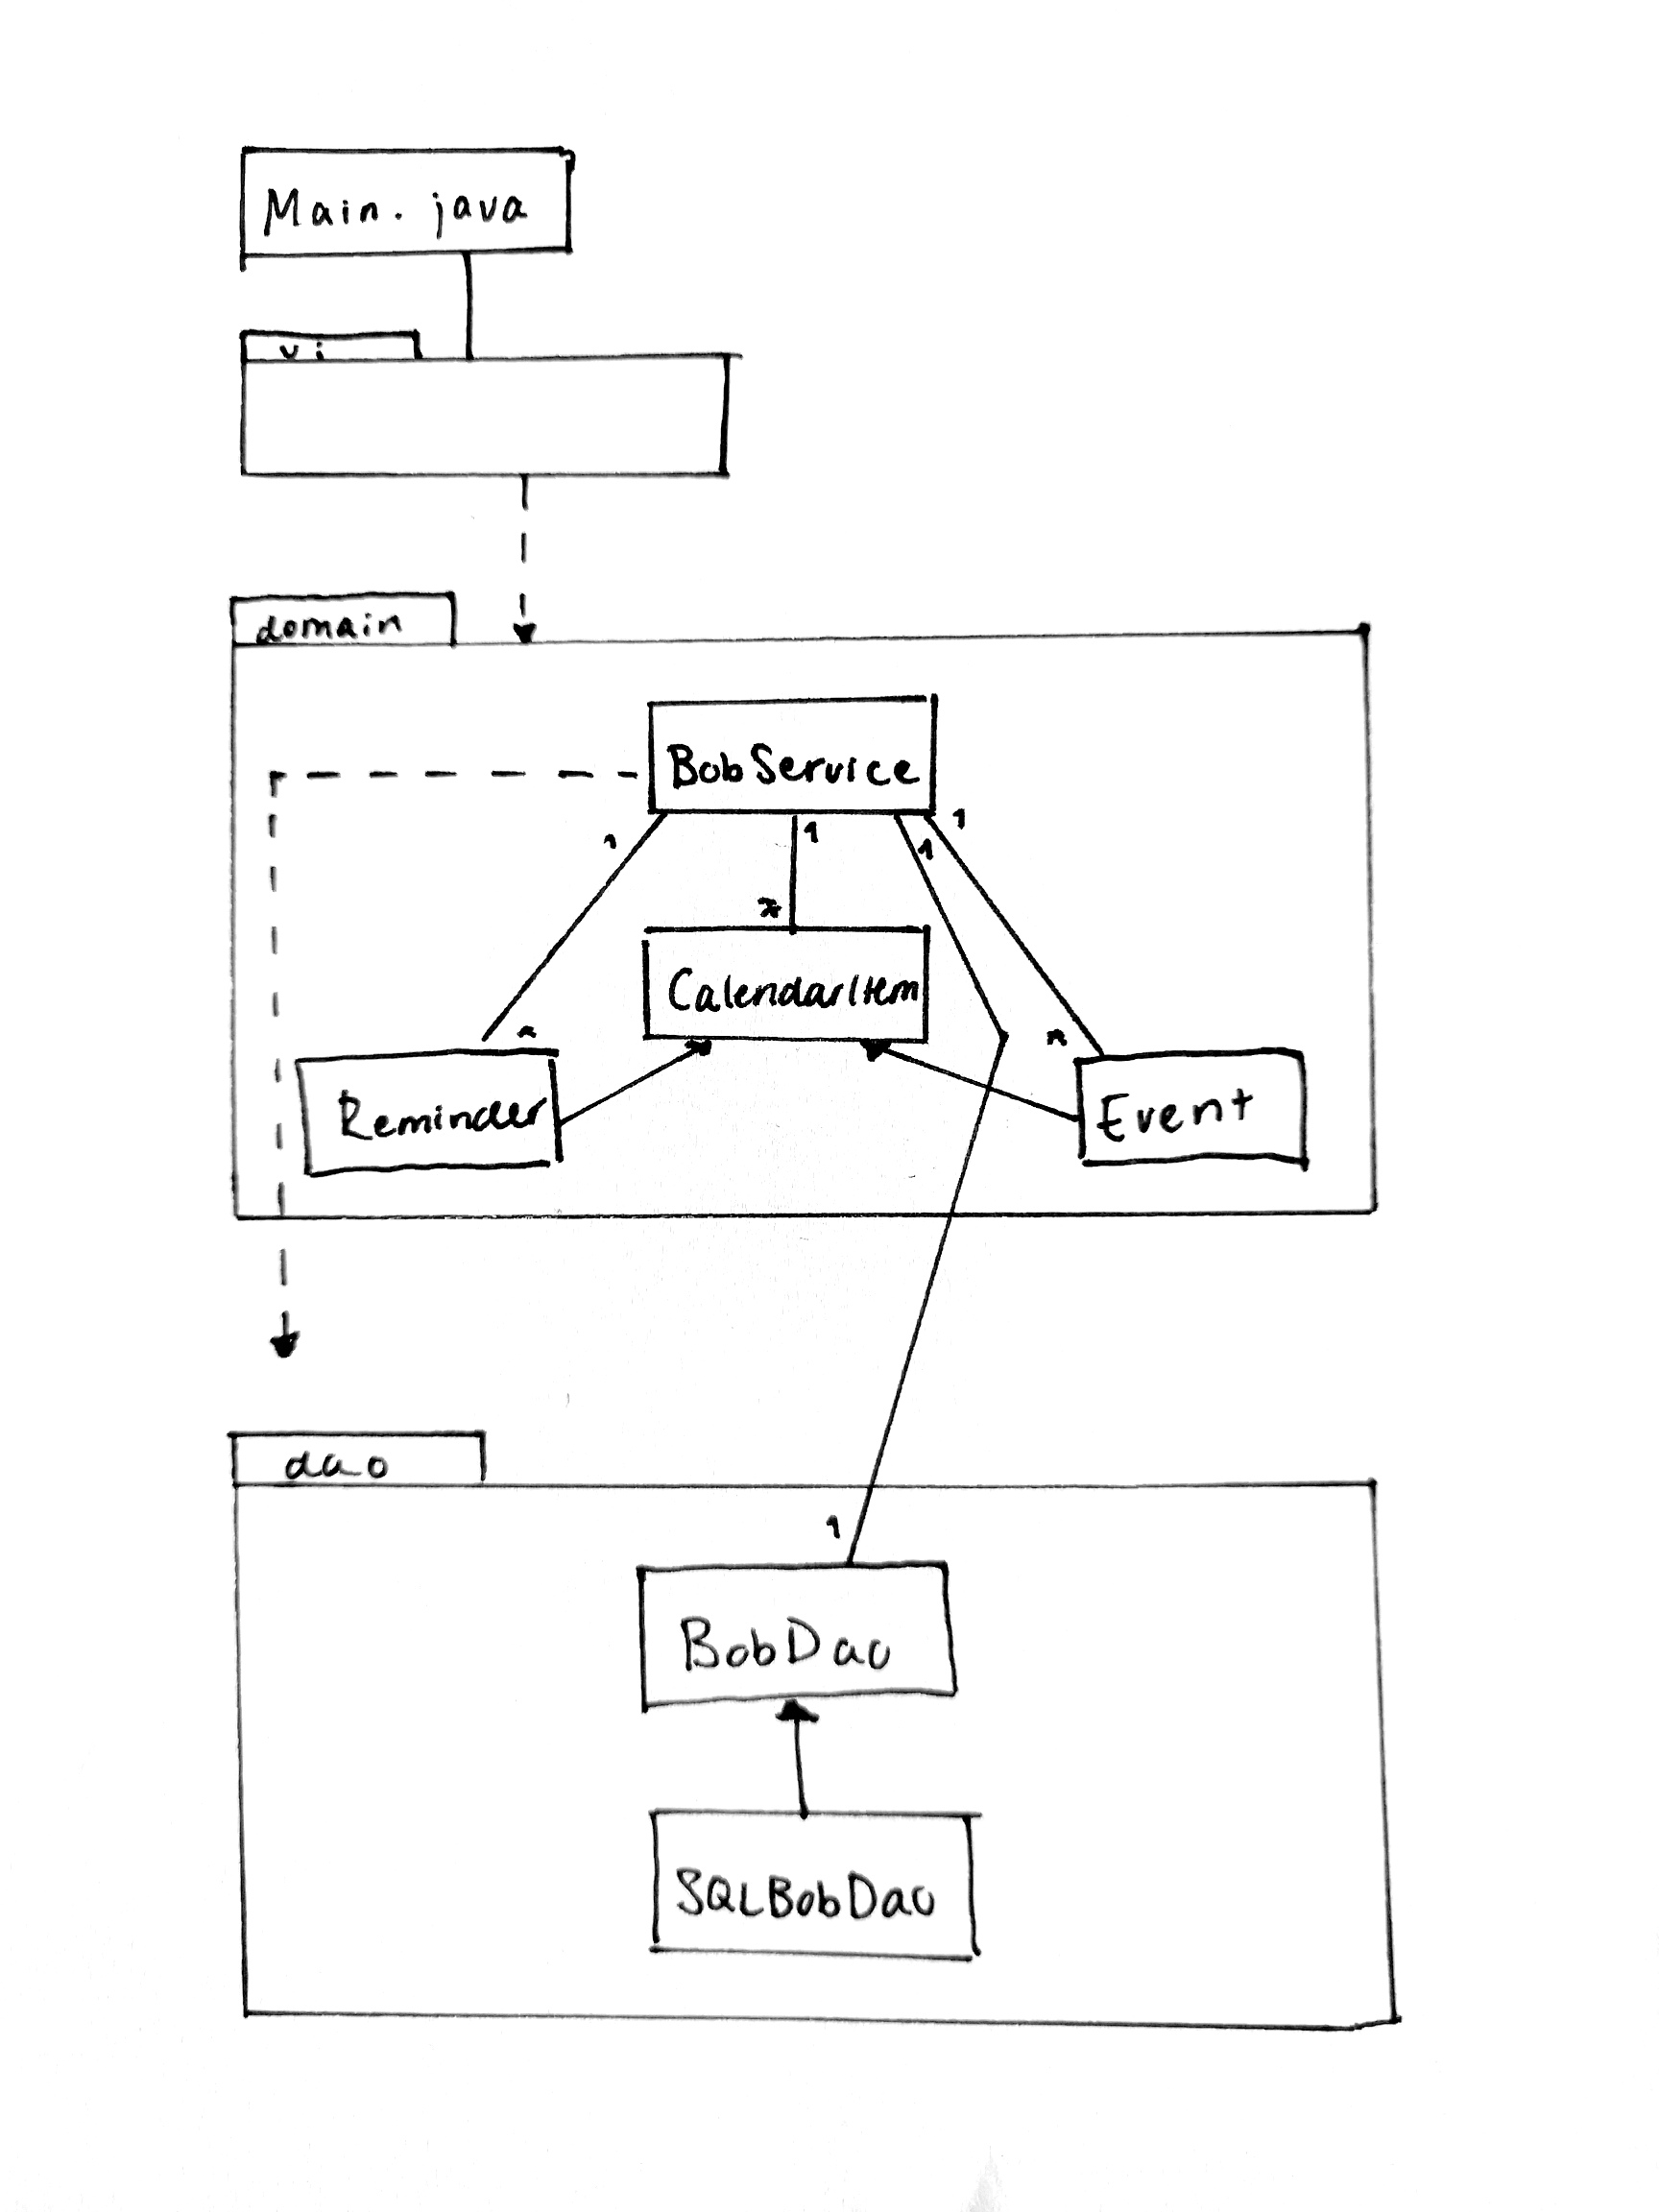 Main.java
ui
domain
BobService
1
1
1
1
*
CalendarItem
*
*
Reminder
Event
dao
1
BobDao
SQLBobDao